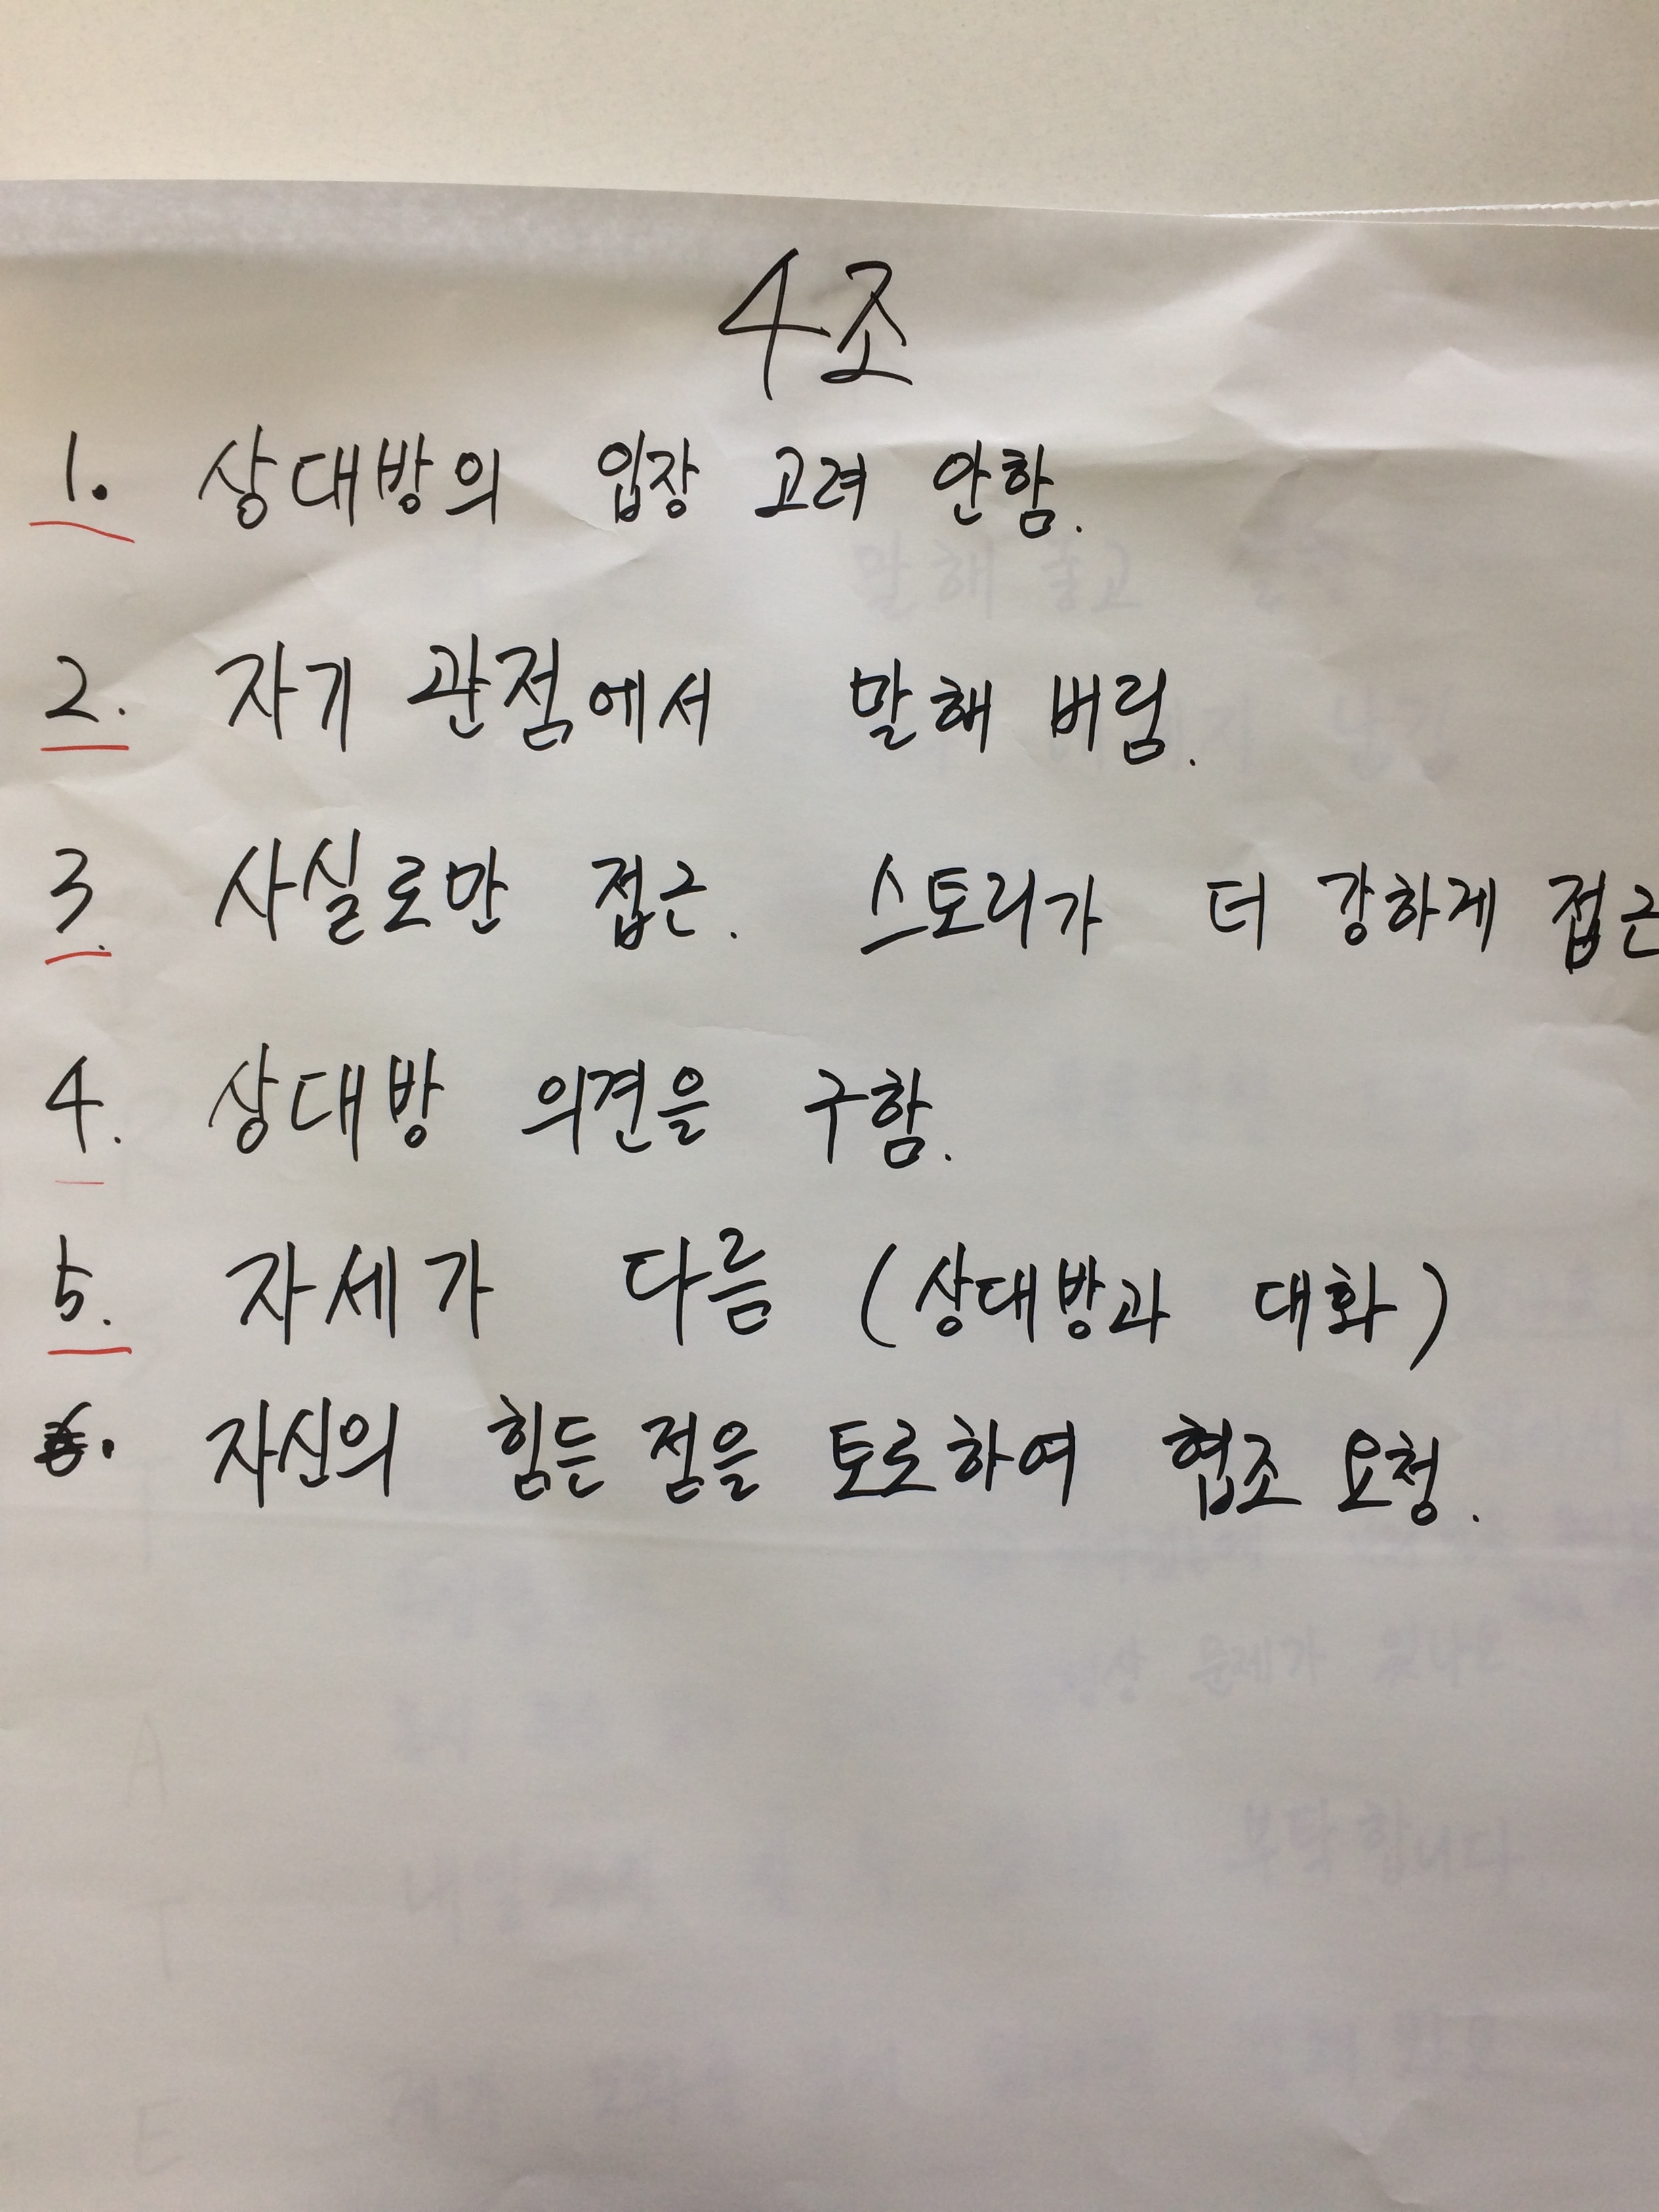 4조
1. 상대방의 입장 고려 안함.
2. 자기 관점에서 말해 버림.
3. 사실로만 접근. 스토리가 더 강하게 접근
4. 상대방 의견을 구함.
5. 자세가 다름 (상대방과 대화)
6. 자신의 힘든 점을 토로하여 협조 요청.
말해 놓고
문제가
부탁합니다
A
T
E